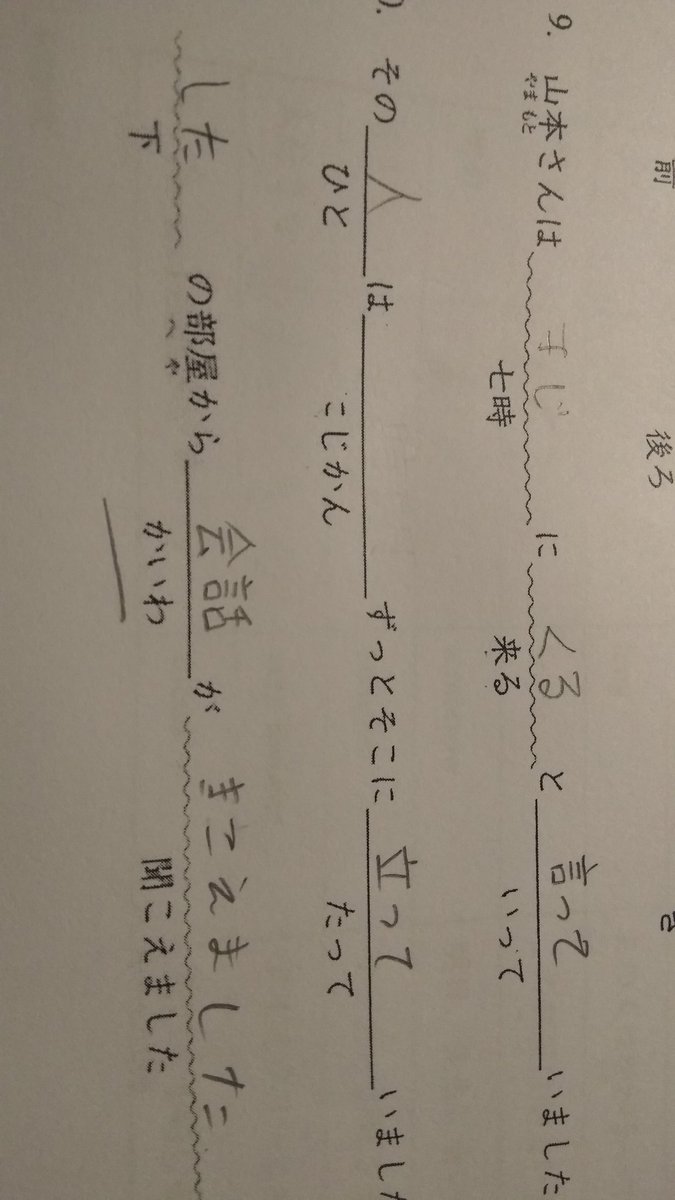 前 後ろ
9. 山本さんは じ に くる と 言って いました
やまもと 七時 来る いって
. その 人 は ずっとそこに 立って いまし
ひと こじかん たって
した の部屋から 会話 が きこえました
下 へや かいわ 聞こえました